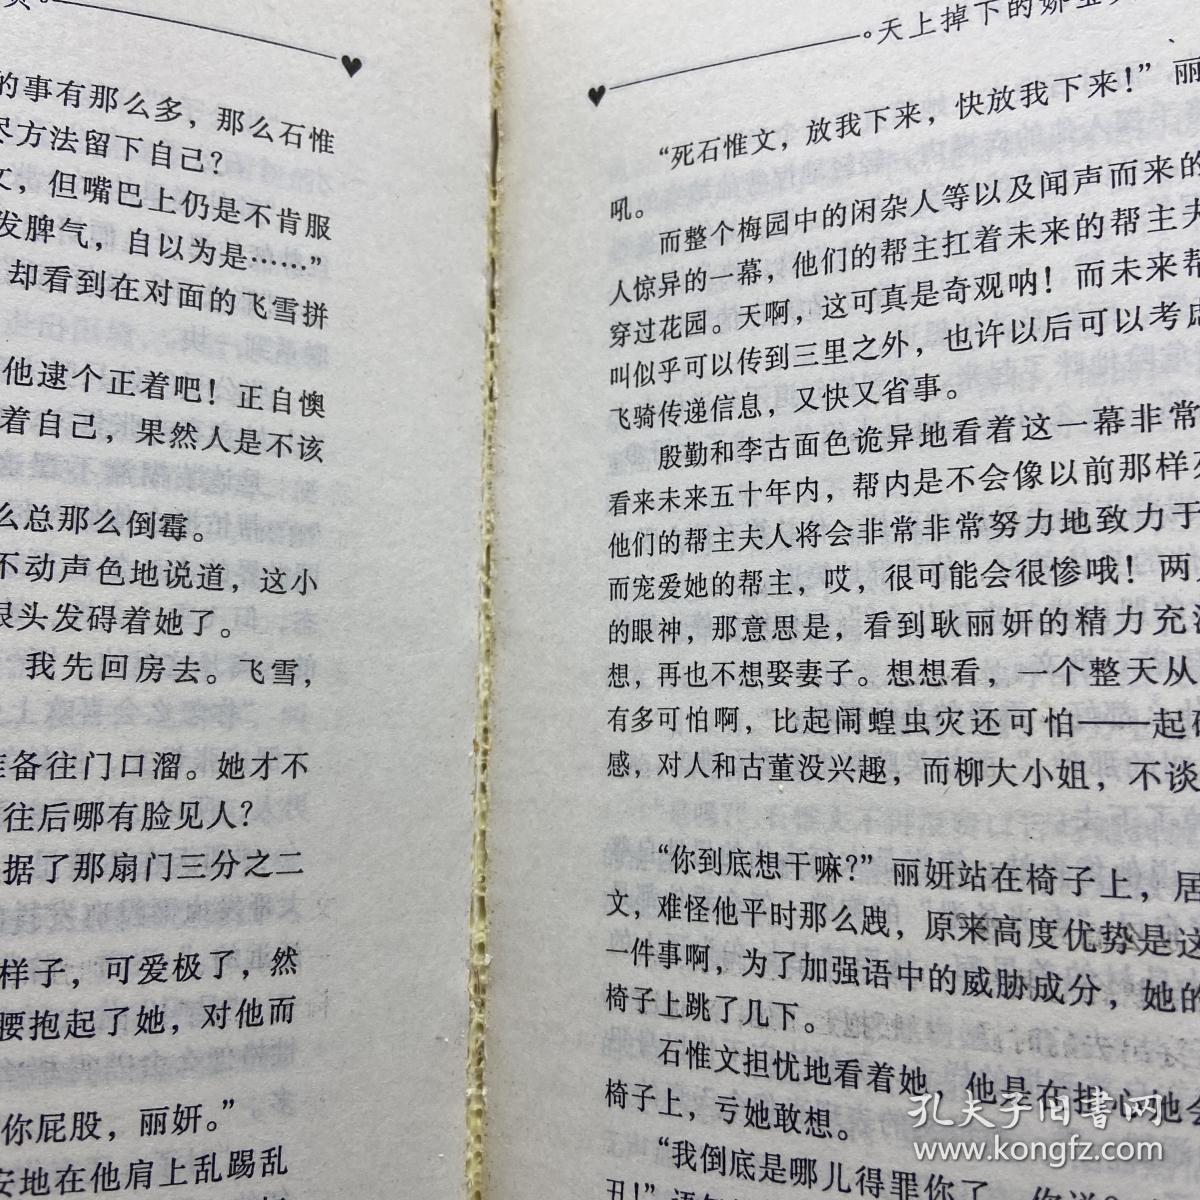 的事有那么多，那么石惟
尽方法留下自己？
文，但嘴巴上仍是不肯服
发脾气，自以为是……”
却看到在对面的飞雪拼
他逮个正着吧！正自懊
着自己，果然人是不该
么总那么倒霉。
不动声色地说道，这小
眼头发碍着她了。
我先回房去。飞雪，
准备往门口溜。她才不
往后哪有脸见人？
据了那扇门三分之二
样子，可爱极了，然
腰抱起了她，对他而
你屁股，丽妍。”
安地在他肩上乱踢乱
。天上掉下的娜
“死石惟文，放我下来，快放我下来！”丽
吼。
而整个梅园中的闲杂人等以及闻声而来的
人惊异的一幕，他们的帮主扛着未来的帮主夫
穿过花园。天啊，这可真是奇观呐！而未来帮
叫似乎可以传到三里之外，也许以后可以考虑
飞骑传递信息，又快又省事。
殷勤和李古面色诡异地看着这一幕非常
看来未来五十年内，帮内是不会像以前那样死
他们的帮主夫人将会非常非常努力地致力于
而宠爱她的帮主，哎，很可能会很惨哦！两
的眼神，那意思是，看到耿丽妍的精力充沛
想，再也不想娶妻子。想想看，一个整天从
有多可怕啊，比起闹蝗虫灾还可怕——起码
感，对人和古董没兴趣，而柳大小姐，不谈
“你到底想干嘛？”丽妍站在椅子上，居
文，难怪他平时那么跩，原来高度优势是这
一件事啊，为了加强语中的威胁成分，她的
椅子上跳了几下。
石惟文担忧地看着她，他是在担心她会
椅子上，亏她敢想。
“我倒底是哪儿得罪你了，你说
丑！”语
孔夫子旧书网
www.kongfz.com